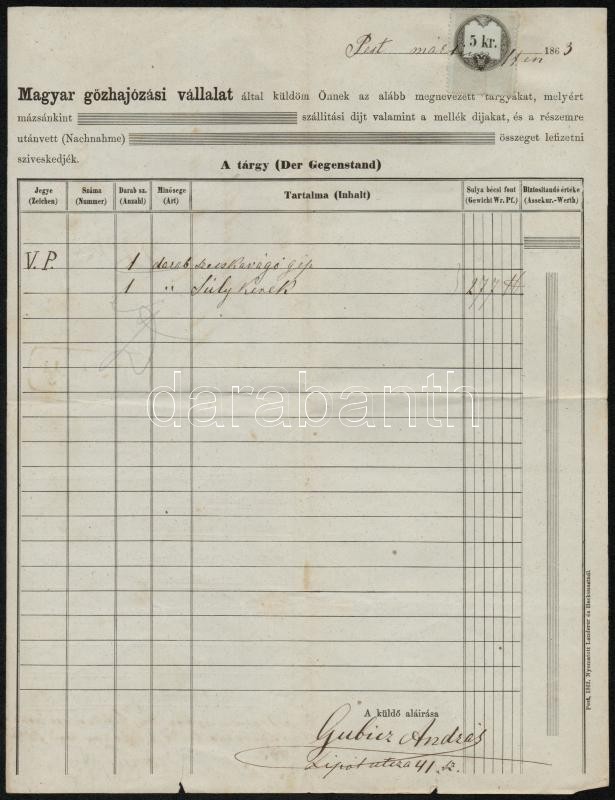 5 kr.
Pest 1863
Magyar gőzhajózási vállalat által küldöm Önnek az alább megnevezett tárgyakat, melyért
mázsánkint szállitási dijt valamint a mellék dijakat, és a részemre
utánvett (Nachnahme) összeget lefizetni
sziveskedjék.
A tárgy (Der Gegenstand)
Jegye Száma Darab sz. Minősege Tartalma (Inhalt) Sulya bécsi font Biztositandó értéke
(Zeichen) (Nummer) (Anzahl) (Art) (Gewicht Wr. Pf.) (Assekur.-Werth)
V. P. 1 darab szecskavágó gép
1 " Súly kerék 277 ℔
darabanth
A küldő aláirása
Gubicz András
Lipót utcza 41 sz.
Pest, 1862. Nyomatott Landerer és Heckenastnál